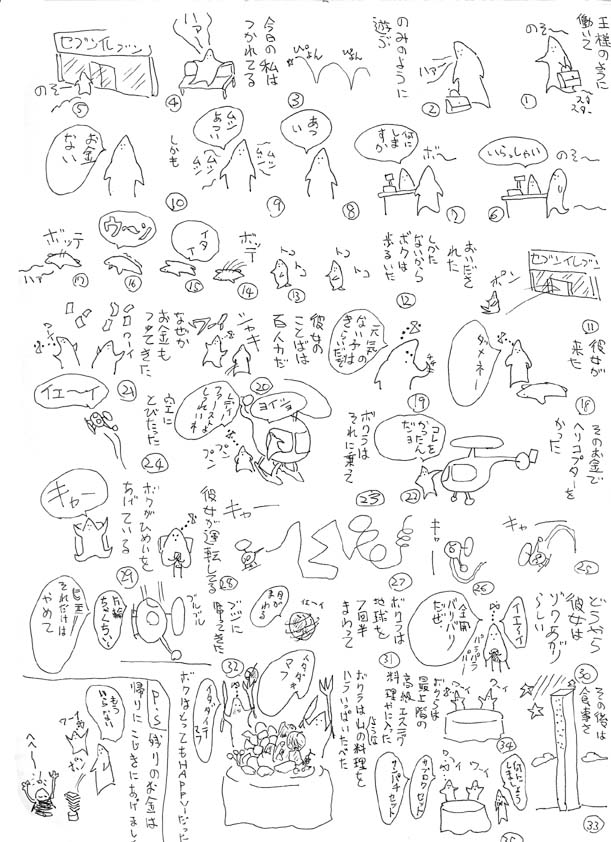 王様のように
働いて
のそ〜
スタ
スタ
①
のみのように
遊ぶ
ハァ
②
ぴょん
ぴょん
③
今日の私は
つかれてる
ハァ
④
セブンイレブン
のそ〜
⑤
のそ〜
いらっしゃい
⑥
ボ〜
何に
しま
すか
⑦
あつ
い
⑧
ムシ
あつい
⑨
しかも
お金
ない
⑩
セブンイレブン
ポン
⑪
おいださ
れた
しかた
ないから
ボクは
歩るいた
⑫
トコ
トコ
⑬
ボッテ
⑭
イタ
イ
⑮
ウ〜ン
⑯
ボッテ
ハァ
⑰
彼女が
来た
ダメネー
⑱
元気の
ない子は
きらいだぞ
⑲
彼女の
ことばは
百人力だ
シャキ
ワーイ
⑳
なぜか
お金も
ふってきた
ワーイ
㉑
そのお金で
ヘリコプターを
かった
コレを
かったん
だヨ
㉒
ボクラは
それに乗って
㉓
ヨイショ
レディー
ファーストよ
プン
プン
空に
とびたった
イエーイ
㉔
㉕
キャー
㉖
㉗
キャー
㉘
彼女が運転してる
ボクがひめいを
あげている
キャー
㉙
どうやら
彼女は
ゾクあがり
らしい
イエーイ
全開
バリバリ
だぜ
パラ
㉚
ボクラは
地球を
7回半
まわって
㉛
イエーイ
目が
まわる
ブジに
帰ってきた
㉜
ブルブル
片輪
ちゃくちい
ヒェー
それだけは
やめて
その後は
食事さ
㉝
ボクらは
最上階の
高級エスニック
料理やに入った
ワーイ
ワイ
㉞
何にしょう
しましょう
ワーイ
ワイ
サブロクセット
サンパチセット
㉟
ボクラは山の料理を
ハライッぱいたべた
イタダキ
マフ
イタダイテ
マフ
ボクはとってもHAPPYだった
P.S 残りのお金は
帰りにこじきにあげまし
もう
いらない
ワーイ
ポン
へへ〜